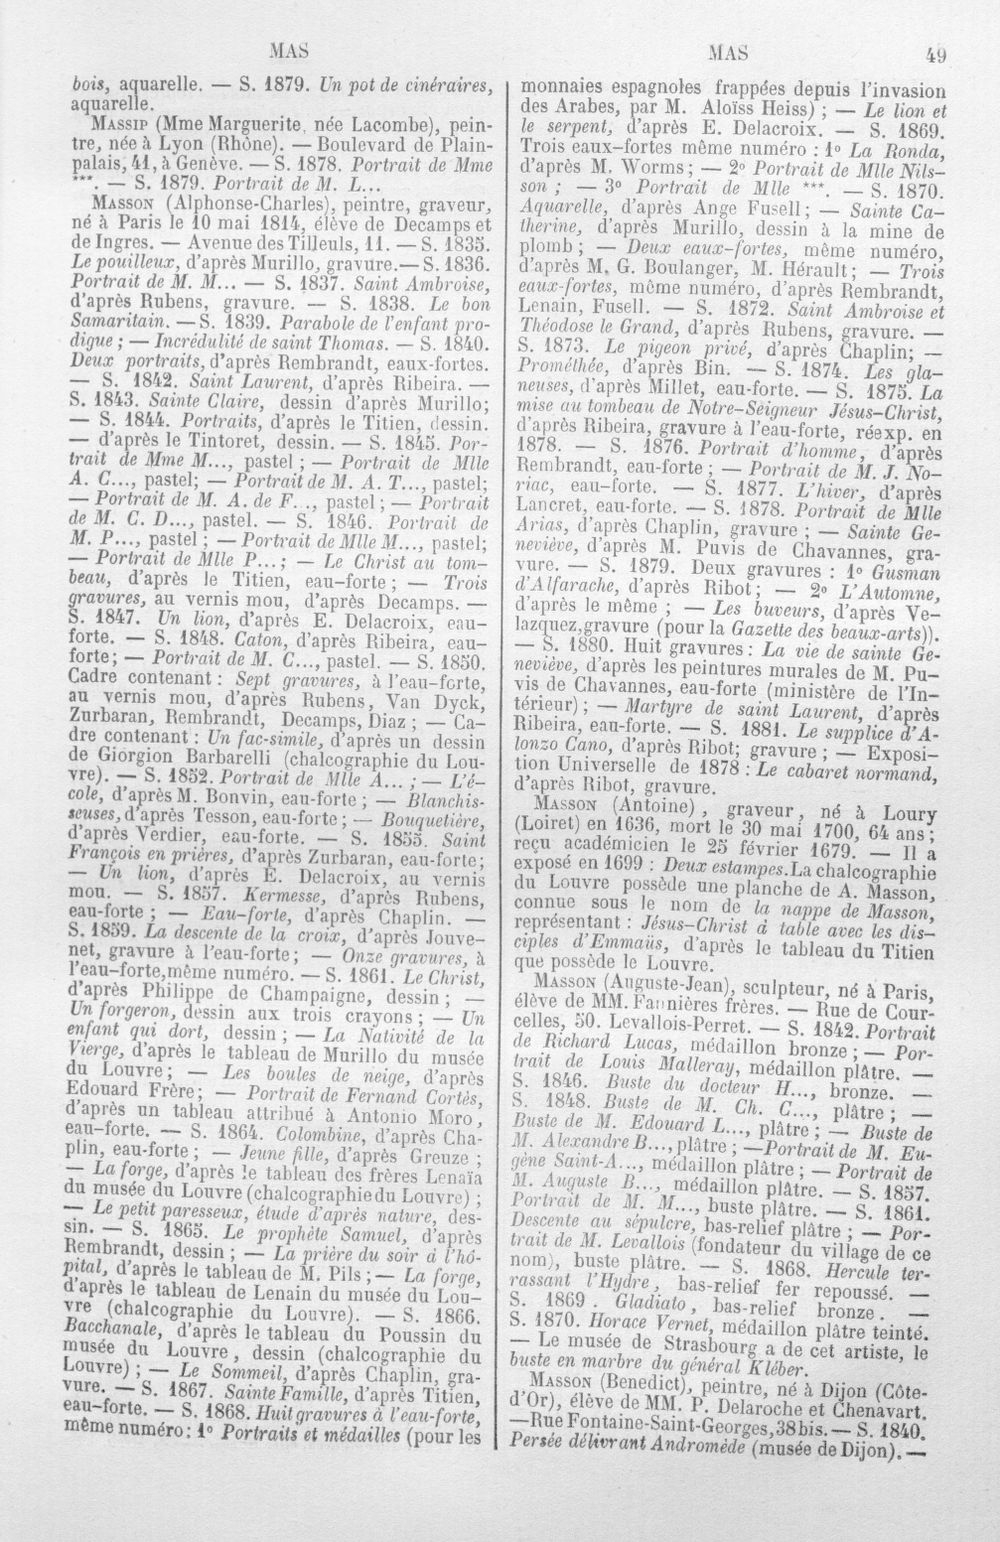 MAS
bois, aquarelle. — S. 1879. Un pot de cinéraires,
aquarelle.
MASSIP (Mme Marguerite, née Lacombe), pein-
tre, née à Lyon (Rhône). — Boulevard de Plain-
palais, 41, à Genève. — S. 1878. Portrait de Mme
***. — S. 1879. Portrait de M. L...
MASSON (Alphonse-Charles), peintre, graveur,
né à Paris le 10 mai 1814, élève de Decamps et
de Ingres. — Avenue des Tilleuls, 11. — S. 1835.
Le pouilleux, d'après Murillo, gravure. — S. 1836.
Portrait de M. M... — S. 1837. Saint Ambroise,
d'après Rubens, gravure. — S. 1838. Le bon
Samaritain. — S. 1839. Parabole de l'enfant pro-
digue ; — Incrédulité de saint Thomas. — S. 1840.
Deux portraits, d'après Rembrandt, eaux-fortes.
— S. 1842. Saint Laurent, d'après Ribeira. —
S. 1843. Sainte Claire, dessin d'après Murillo;
— S. 1844. Portraits, d'après le Titien, dessin.
— d'après le Tintoret, dessin. — S. 1845. Por-
trait de Mme M..., pastel ; — Portrait de Mlle
A. C..., pastel; — Portrait de M. A. T..., pastel;
— Portrait de M. A. de F..., pastel ; — Portrait
de M. C. D..., pastel. — S. 1846. Portrait de
M. P..., pastel ; — Portrait de Mlle M..., pastel;
— Portrait de Mlle P...; — Le Christ au tom-
beau, d'après le Titien, eau-forte ; — Trois
gravures, au vernis mou, d'après Decamps. —
S. 1847. Un lion, d'après E. Delacroix, eau-
forte. — S. 1848. Caton, d'après Ribeira, eau-
forte; — Portrait de M. C..., pastel. — S. 1850.
Cadre contenant : Sept gravures, à l'eau-forte,
au vernis mou, d'après Rubens, Van Dyck,
Zurbaran, Rembrandt, Decamps, Diaz ; — Ca-
dre contenant : Un fac-simile, d'après un dessin
de Giorgion Barbarelli (chalcographie du Lou-
vre). — S. 1852. Portrait de Mlle A... ; — L'é-
cole, d'après M. Bonvin, eau-forte ; — Blanchis-
seuses, d'après Tesson, eau-forte ; — Bouquetière,
d'après Verdier, eau-forte. — S. 1855. Saint
François en prières, d'après Zurbaran, eau-forte;
— Un lion, d'après E. Delacroix, au vernis
mou. — S. 1857. Kermesse, d'après Rubens,
eau-forte ; — Eau-forte, d'après Chaplin. —
S. 1859. La descente de la croix, d'après Jouve-
net, gravure à l'eau-forte; — Onze gravures, à
l'eau-forte, même numéro. — S. 1861. Le Christ,
d'après Philippe de Champaigne, dessin ; —
Un forgeron, dessin aux trois crayons ; — Un
enfant qui dort, dessin ; — La Nativité de la
Vierge, d'après le tableau de Murillo du musée
du Louvre ; — Les boules de neige, d'après
Edouard Frère; — Portrait de Fernand Cortès,
d'après un tableau attribué à Antonio Moro,
eau-forte. — S. 1864. Colombine, d'après Cha-
plin, eau-forte ; — Jeune fille, d'après Greuze ;
— La forge, d'après le tableau des frères Lenaïa
du musée du Louvre (chalcographie du Louvre) ;
— Le petit paresseux, étude d'après nature, des-
sin. — S. 1865. Le prophète Samuel, d'après
Rembrandt, dessin ; — La prière du soir à l'hô-
pital, d'après le tableau de M. Pils ; — La forge,
d'après le tableau de Lenain du musée du Lou-
vre (chalcographie du Louvre). — S. 1866.
Bacchanale, d'après le tableau du Poussin du
musée du Louvre, dessin (chalcographie du
Louvre) ; — Le Sommeil, d'après Chaplin, gra-
vure. — S. 1867. Sainte Famille, d'après Titien,
eau-forte. — S. 1868. Huit gravures à l'eau-forte,
même numéro: 1º Portraits et médailles (pour les
MAS 49
monnaies espagnoles frappées depuis l'invasion
des Arabes, par M. Aloïss Heiss) ; — Le lion et
le serpent, d'après E. Delacroix. — S. 1869.
Trois eaux-fortes même numéro : 1º La Ronda,
d'après M. Worms ; — 2º Portrait de Mlle Nils-
son ; — 3º Portrait de Mlle ***. — S. 1870.
Aquarelle, d'après Ange Fusell ; — Sainte Ca-
therine, d'après Murillo, dessin à la mine de
plomb ; — Deux eaux-fortes, même numéro,
d'après M. G. Boulanger, M. Hérault ; — Trois
eaux-fortes, même numéro, d'après Rembrandt,
Lenain, Fusell. — S. 1872. Saint Ambroise et
Théodose le Grand, d'après Rubens, gravure. —
S. 1873. Le pigeon privé, d'après Chaplin; —
Prométhée, d'après Bin. — S. 1874. Les gla-
neuses, d'après Millet, eau-forte. — S. 1875. La
mise au tombeau de Notre-Seigneur Jésus-Christ,
d'après Ribeira, gravure à l'eau-forte, réexp. en
1878. — S. 1876. Portrait d'homme, d'après
Rembrandt, eau-forte ; — Portrait de M. J. No-
riac, eau-forte. — S. 1877. L'hiver, d'après
Lancret, eau-forte. — S. 1878. Portrait de Mlle
Arias, d'après Chaplin, gravure ; — Sainte Ge-
neviève, d'après M. Puvis de Chavannes, gra-
vure. — S. 1879. Deux gravures : 1º Gusman
d'Alfarache, d'après Ribot ; — 2º L'Automne,
d'après le même ; — Les buveurs, d'après Ve-
lazquez, gravure (pour la Gazette des beaux-arts)).
— S. 1880. Huit gravures : La vie de sainte Ge-
neviève, d'après les peintures murales de M. Pu-
vis de Chavannes, eau-forte (ministère de l'In-
térieur) ; — Martyre de saint Laurent, d'après
Ribeira, eau-forte. — S. 1881. Le supplice d'A-
lonzo Cano, d'après Ribot; gravure ; — Exposi-
tion Universelle de 1878 : Le cabaret normand,
d'après Ribot, gravure.
MASSON (Antoine), graveur, né à Loury
(Loiret) en 1636, mort le 30 mai 1700, 64 ans ;
reçu académicien le 25 février 1679. — Il a
exposé en 1699 : Deux estampes. La chalcographie
du Louvre possède une planche de A. Masson,
connue sous le nom de la nappe de Masson,
représentant : Jésus-Christ à table avec les dis-
ciples d'Emmaüs, d'après le tableau du Titien
que possède le Louvre.
MASSON (Auguste-Jean), sculpteur, né à Paris,
élève de MM. Fannières frères. — Rue de Cour-
celles, 50. Levallois-Perret. — S. 1842. Portrait
de Richard Lucas, médaillon bronze ; — Por-
trait de Louis Malleray, médaillon plâtre. —
S. 1846. Buste du docteur H..., bronze. —
S. 1848. Buste de M. Ch. C..., plâtre ; —
Buste de M. Edouard L..., plâtre ; — Buste de
M. Alexandre B..., plâtre ; — Portrait de M. Eu-
gène Saint-A..., médaillon plâtre ; — Portrait de
M. Auguste B..., médaillon plâtre. — S. 1857.
Portrait de M. M..., buste plâtre. — S. 1861.
Descente au sépulcre, bas-relief plâtre ; — Por-
trait de M. Levallois (fondateur du village de ce
nom), buste plâtre. — S. 1868. Hercule ter-
rassant l'Hydre, bas-relief fer repoussé. —
S. 1869. Gladiato, bas-relief bronze. —
S. 1870. Horace Vernet, médaillon plâtre teinté.
— Le musée de Strasbourg a de cet artiste, le
buste en marbre du général Kléber.
MASSON (Benedict), peintre, né à Dijon (Côte-
d'Or), élève de MM. P. Delaroche et Chenavart.
— Rue Fontaine-Saint-Georges, 38 bis. — S. 1840.
Persée délivrant Andromède (musée de Dijon). —